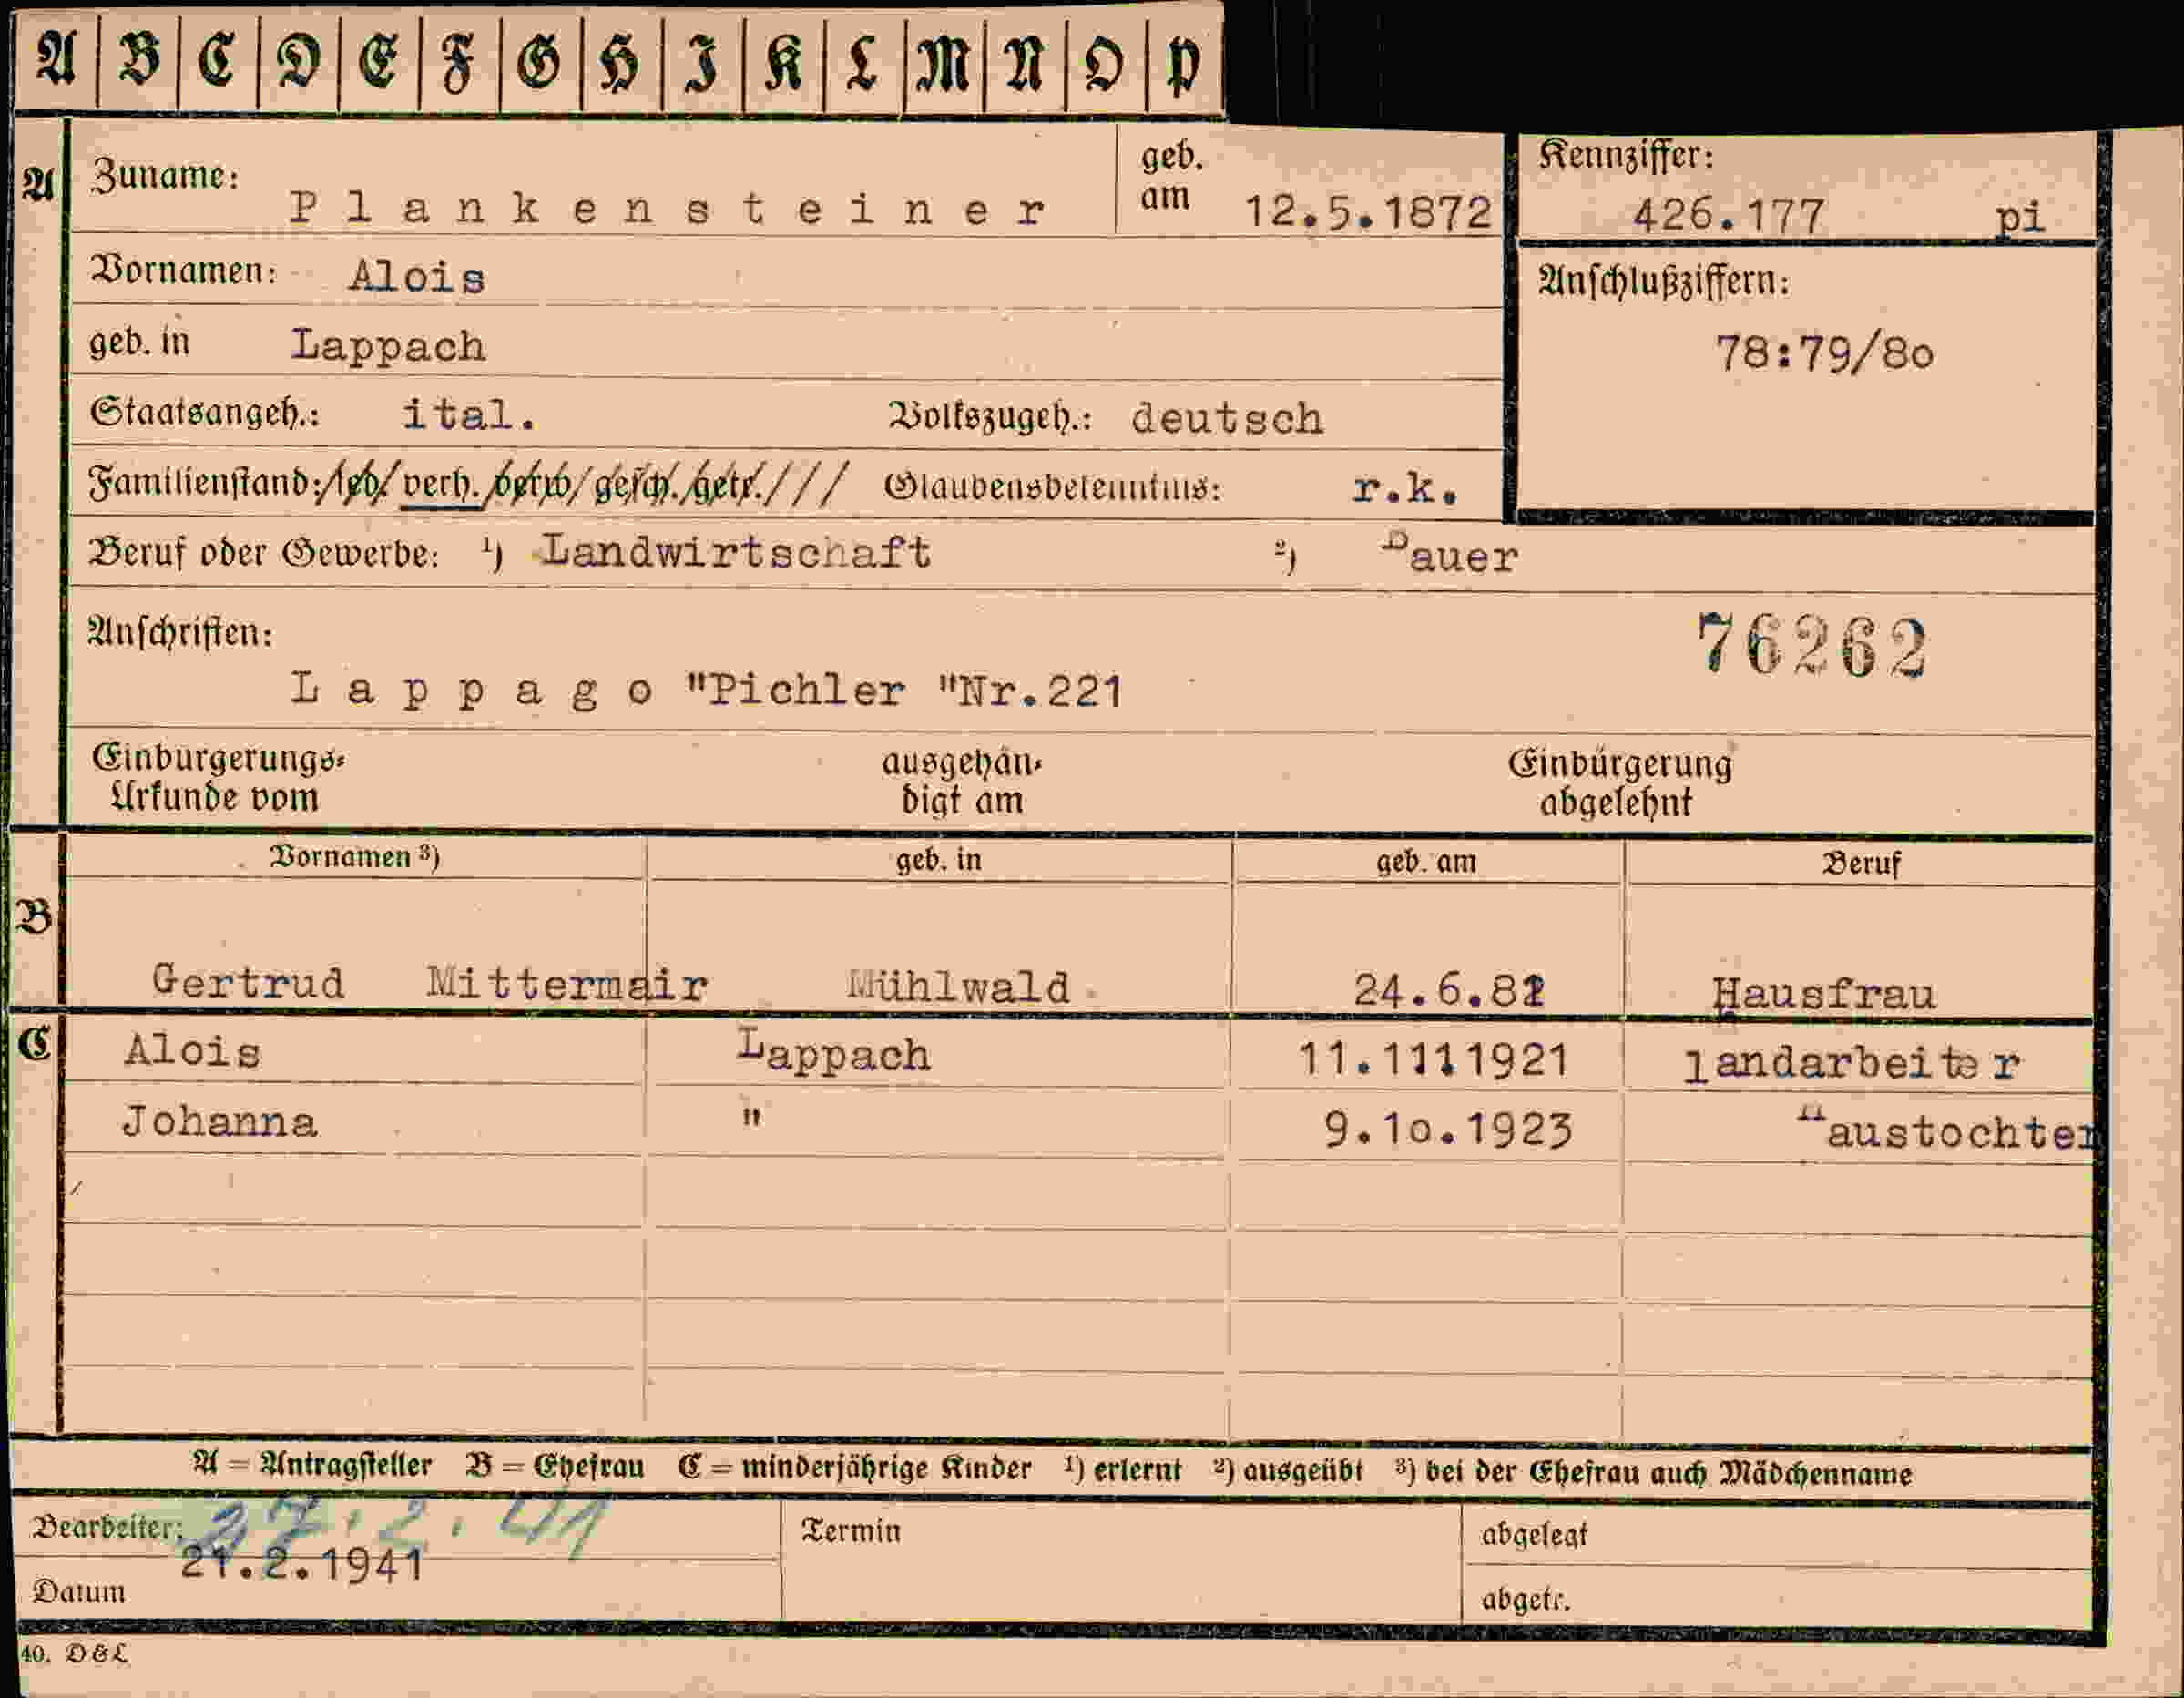 A B C D E F G H I K L M N O P
A Zuname: Plankensteiner geb. am 12.5.1872 Kennziffer: 426.177 pi
Vornamen: Alois Anschlußziffern:
geb. in Lappach 78:79/8o
Staatsangeh.: ital. Volkszugeh.: deutsch
Familienstand: led. verh. verw. gesch. getr. /// Glaubensbekenntnis: r.k.
Beruf oder Gewerbe: ¹) Landwirtschaft ²) Bauer
Anschriften: 76262
Lappago "Pichler "Nr.221
Einbürgerungs= ausgehän= Einbürgerung
Urkunde vom digt am abgelehnt
Vornamen ³) geb. in geb. am Beruf
B
Gertrud Mittermair Mühlwald 24.6.82 Hausfrau
C Alois Lappach 11.1111921 landarbeiter
Johanna " 9.1o.1923 Haustochter
A = Antragsteller B = Ehefrau C = minderjährige Kinder ¹) erlernt ²) ausgeübt ³) bei der Ehefrau auch Mädchenname
Bearbeiter: 27.2.41 Termin abgelegt
21.2.1941
Datum abgetr.
40. D&L